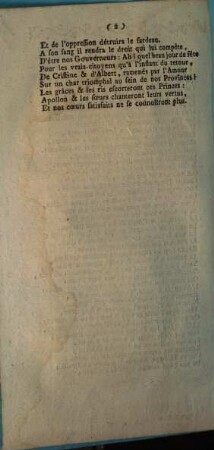 ( 2 )
Et de l'oppression détruira le fardeau.
A son sang il rendra le droit qui lui compète,
D'être nos Gouverneurs: Ah! quel beau jour de fête
Pour les vrais citoyens qu'à l'instant du retour,
De Cristina & d'Albert, ramenés par l'Amour
Sur un char triomphal au sein de nos Provinces!
Les grâces & les ris escorteront ces Princes:
Apollon & ses sœurs chanteront leurs vertus,
Et nos cœurs satisfaits ne se connoîtront plus.